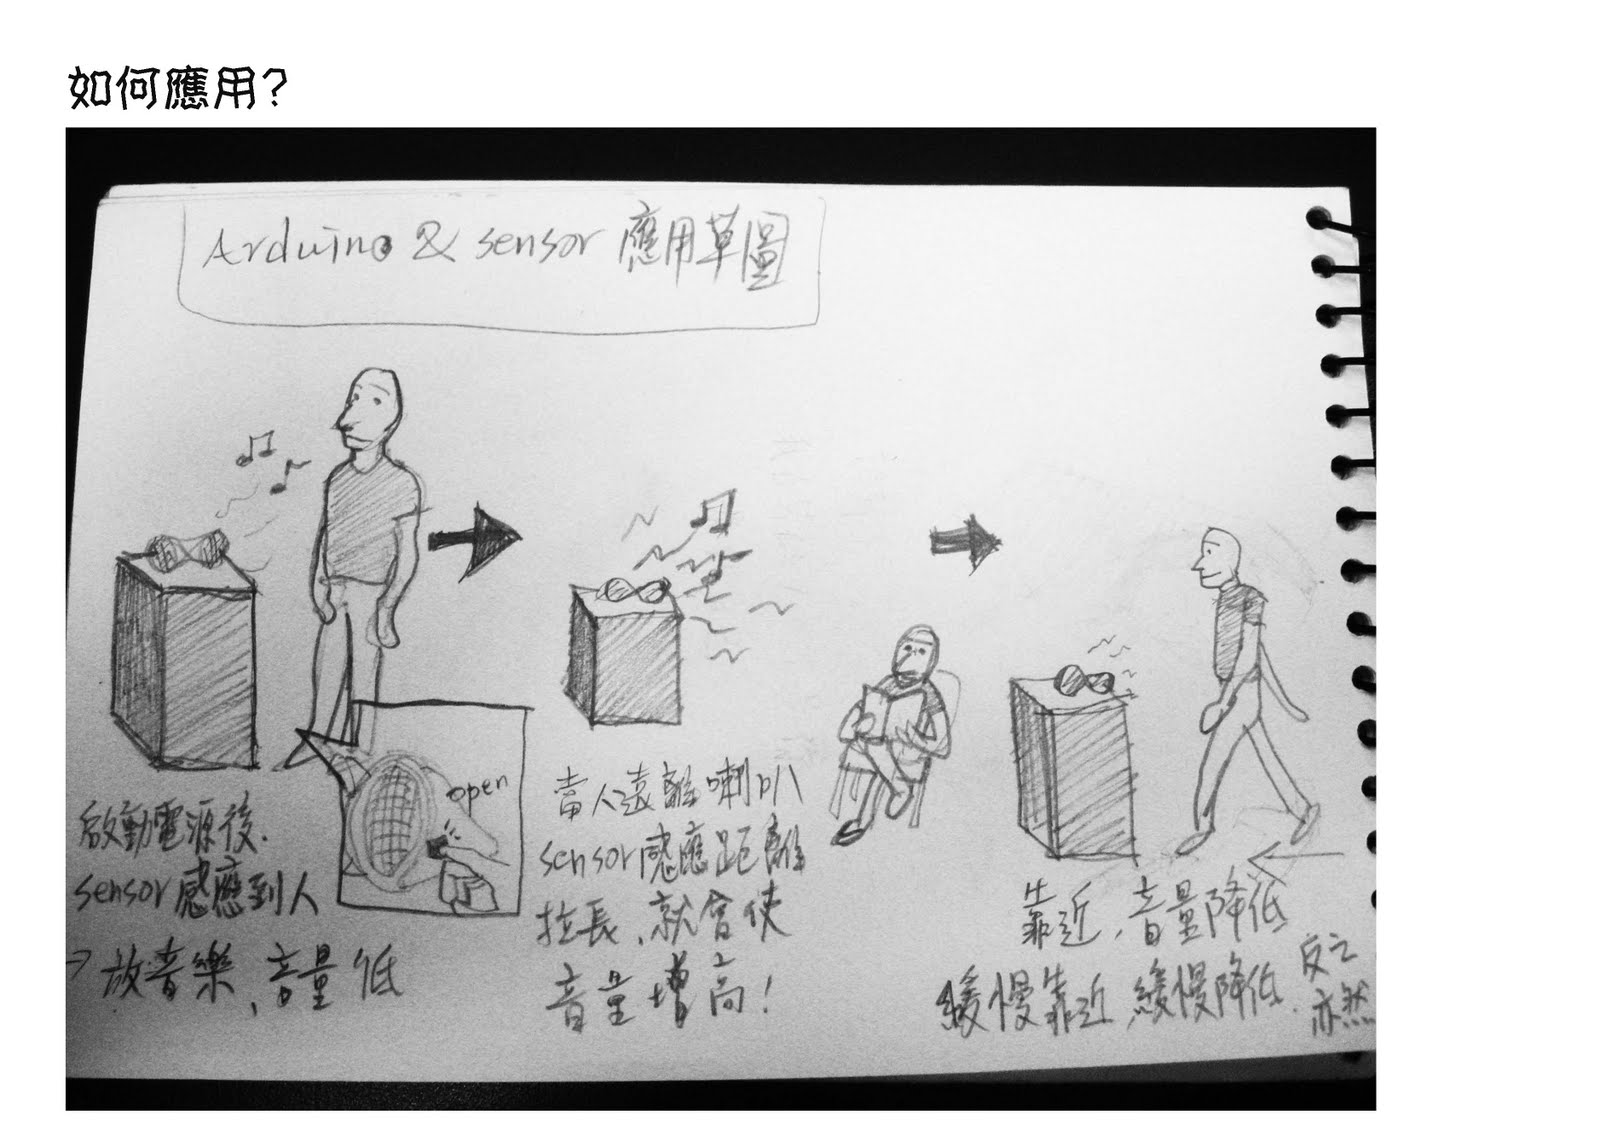 如何應用?
Arduino & sensor 應用草圖
open
啟動電源後.
sensor 感應到人
→ 放音樂、音量低
當人遠離喇叭
sensor 感應距離
拉長、就會使
音量增高!
靠近,音量降低
緩慢靠近,緩慢降低.
反之
亦然